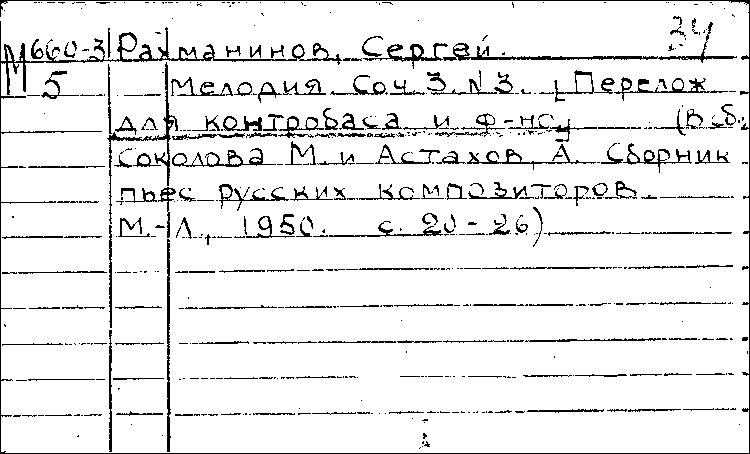 34
М660-3 Рахманинов, Сергей.
5 Мелодия. Соч. 3. N 3. [Перелож
для контробаса и ф-но]. (В сб.:
Соколова М. и Астахов, А. Сборник
пьес русских композиторов.
М.-Л., 1950. с. 20-26)